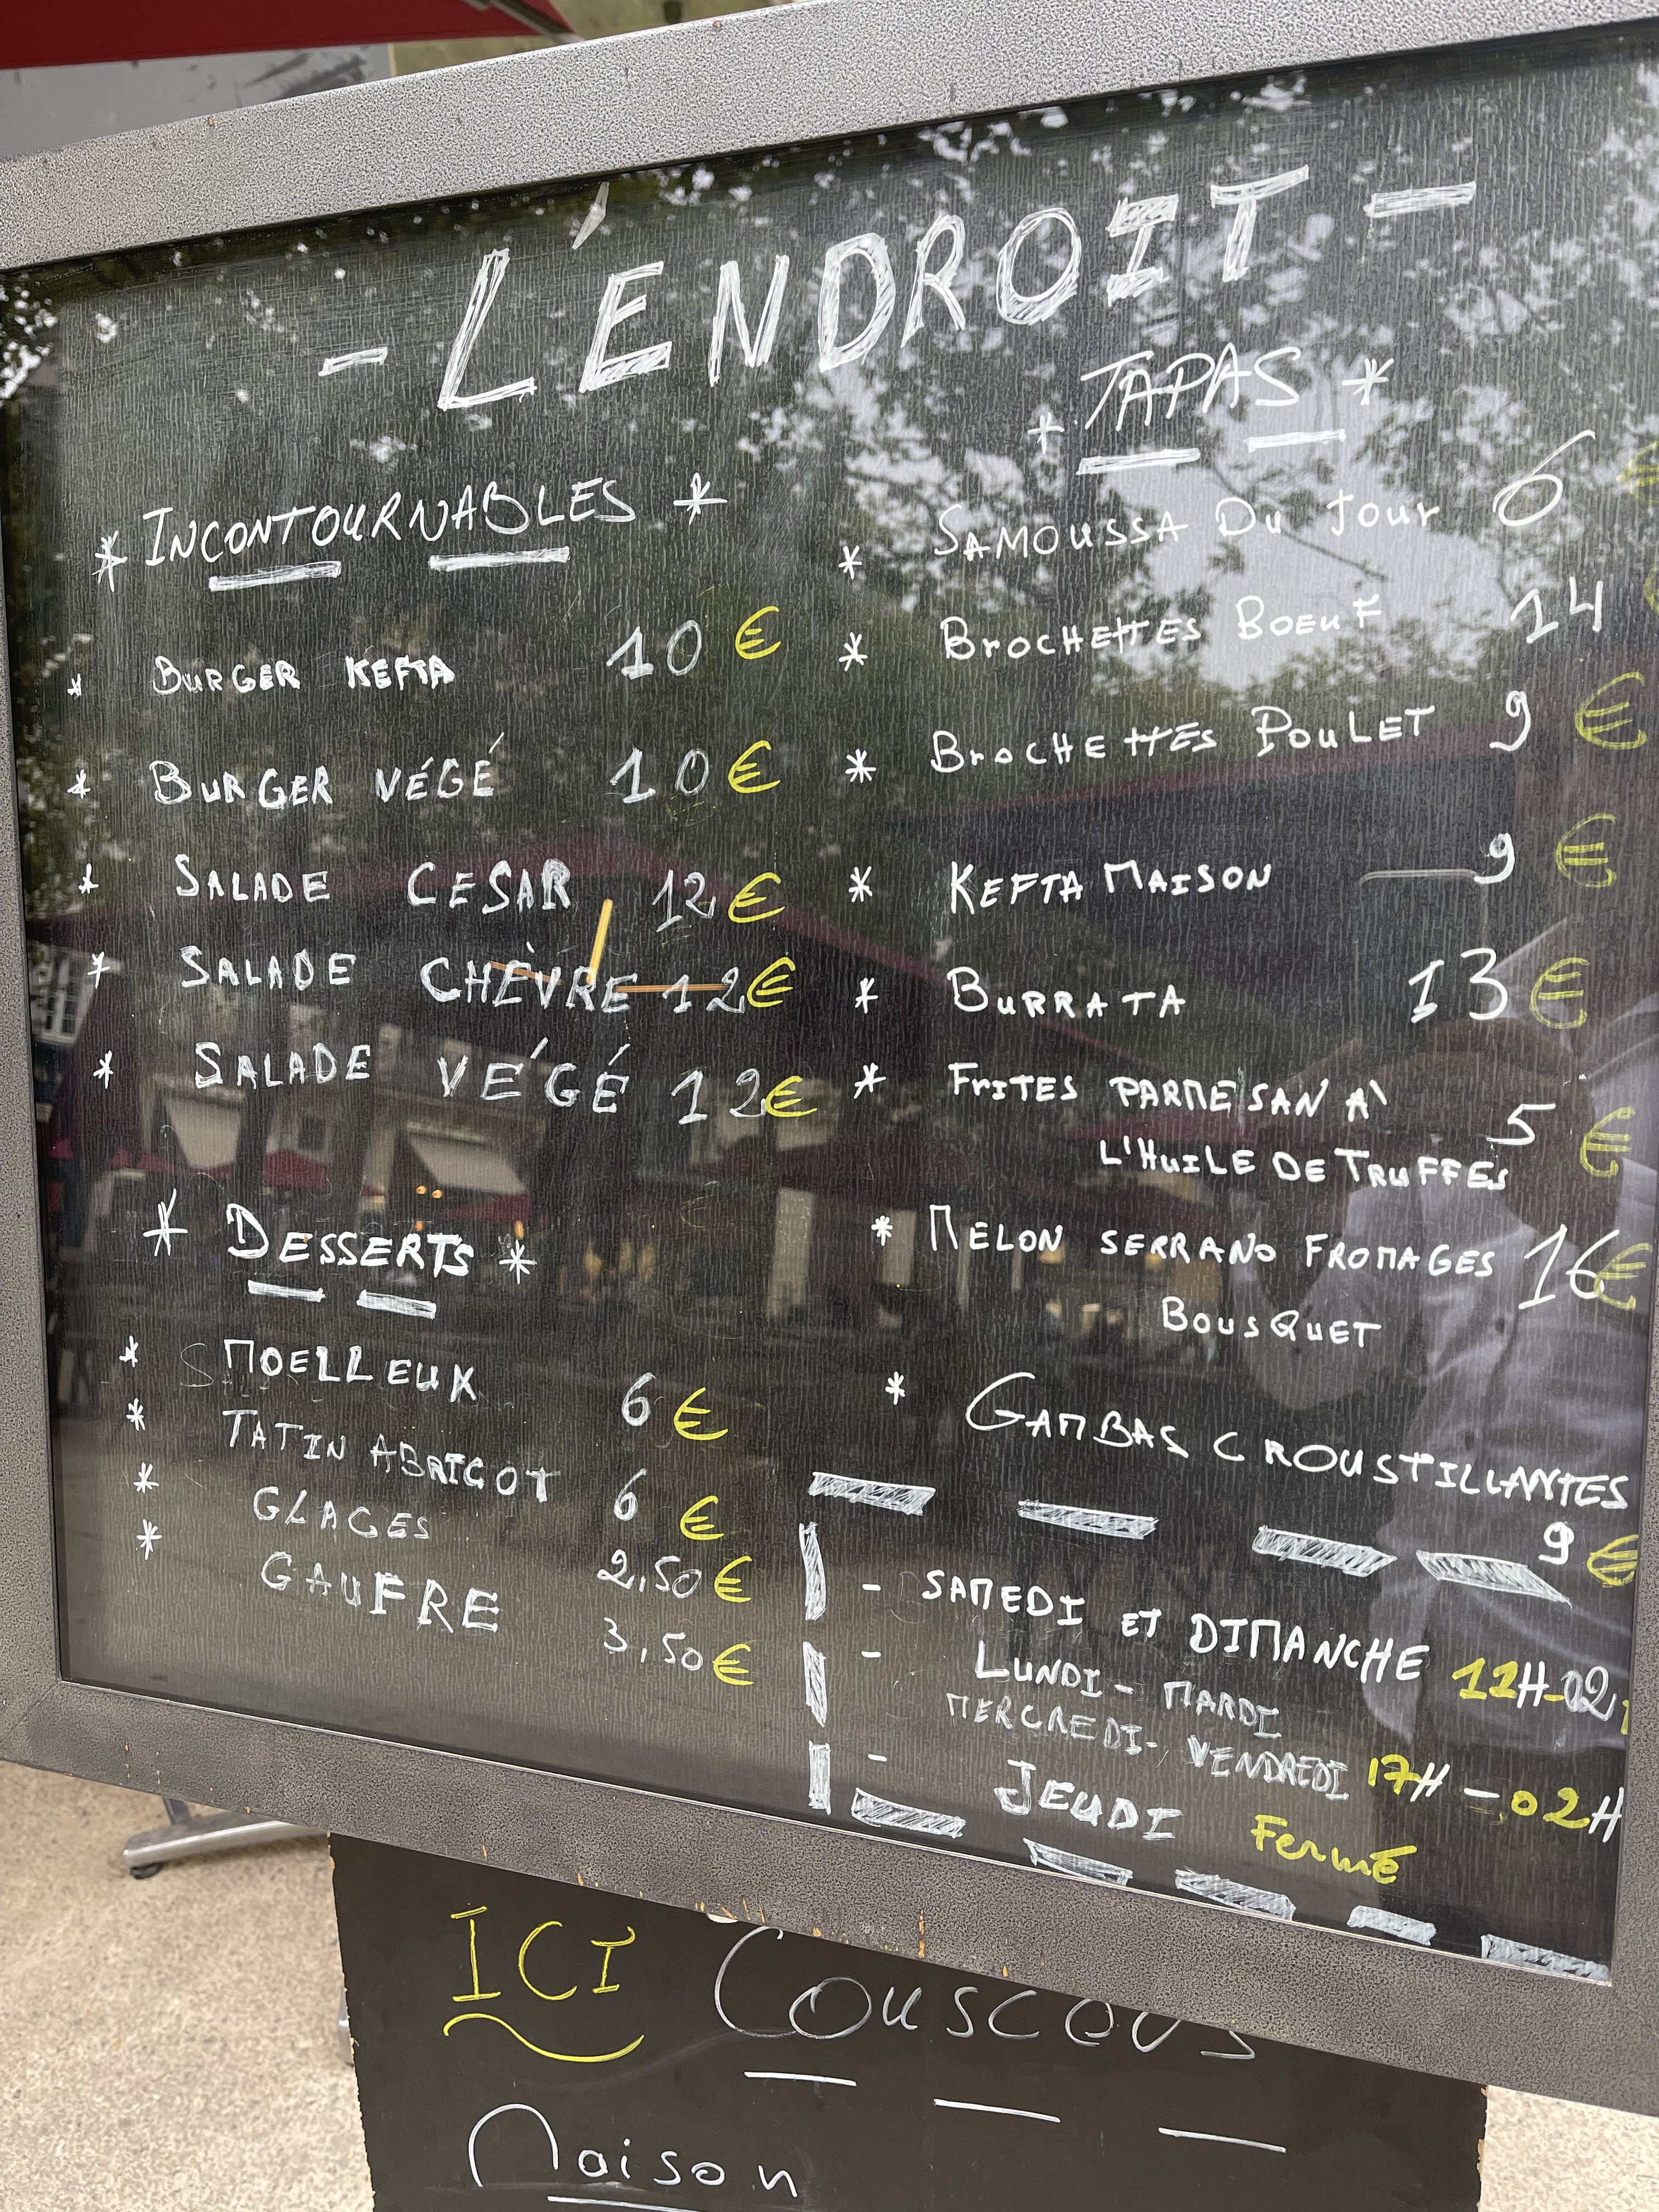 - L'ENDROIT -
* INCONTOURNABLES *
* BURGER KEFTA 10 €
* BURGER VÉGÉ 10 €
* SALADE CESAR 12 €
* SALADE CHÈVRE 12 €
* SALADE VÉGÉ 12 €
* DESSERTS *
* MOELLEUX 6 €
* TATIN ABRICOT 6 €
* GLACES 2,50 €
* GAUFRE 3,50 €
* TAPAS *
* SAMOUSSA DU JOUR 6 €
* BROCHETTES BOEUF 14 €
* BROCHETTES POULET 9 €
* KEFTA MAISON 9 €
* BURRATA 13 €
* FRITES PARMESAN À
L'HUILE DE TRUFFES 5 €
* MELON SERRANO FROMAGES 16 €
BOUSQUET
* GAMBAS CROUSTILLANTES
9 €
- SAMEDI ET DIMANCHE 11H-02
- LUNDI - MARDI
MERCREDI - VENDREDI 17H - 02H
- JEUDI Fermé
ICI COUSCOUS
Maison